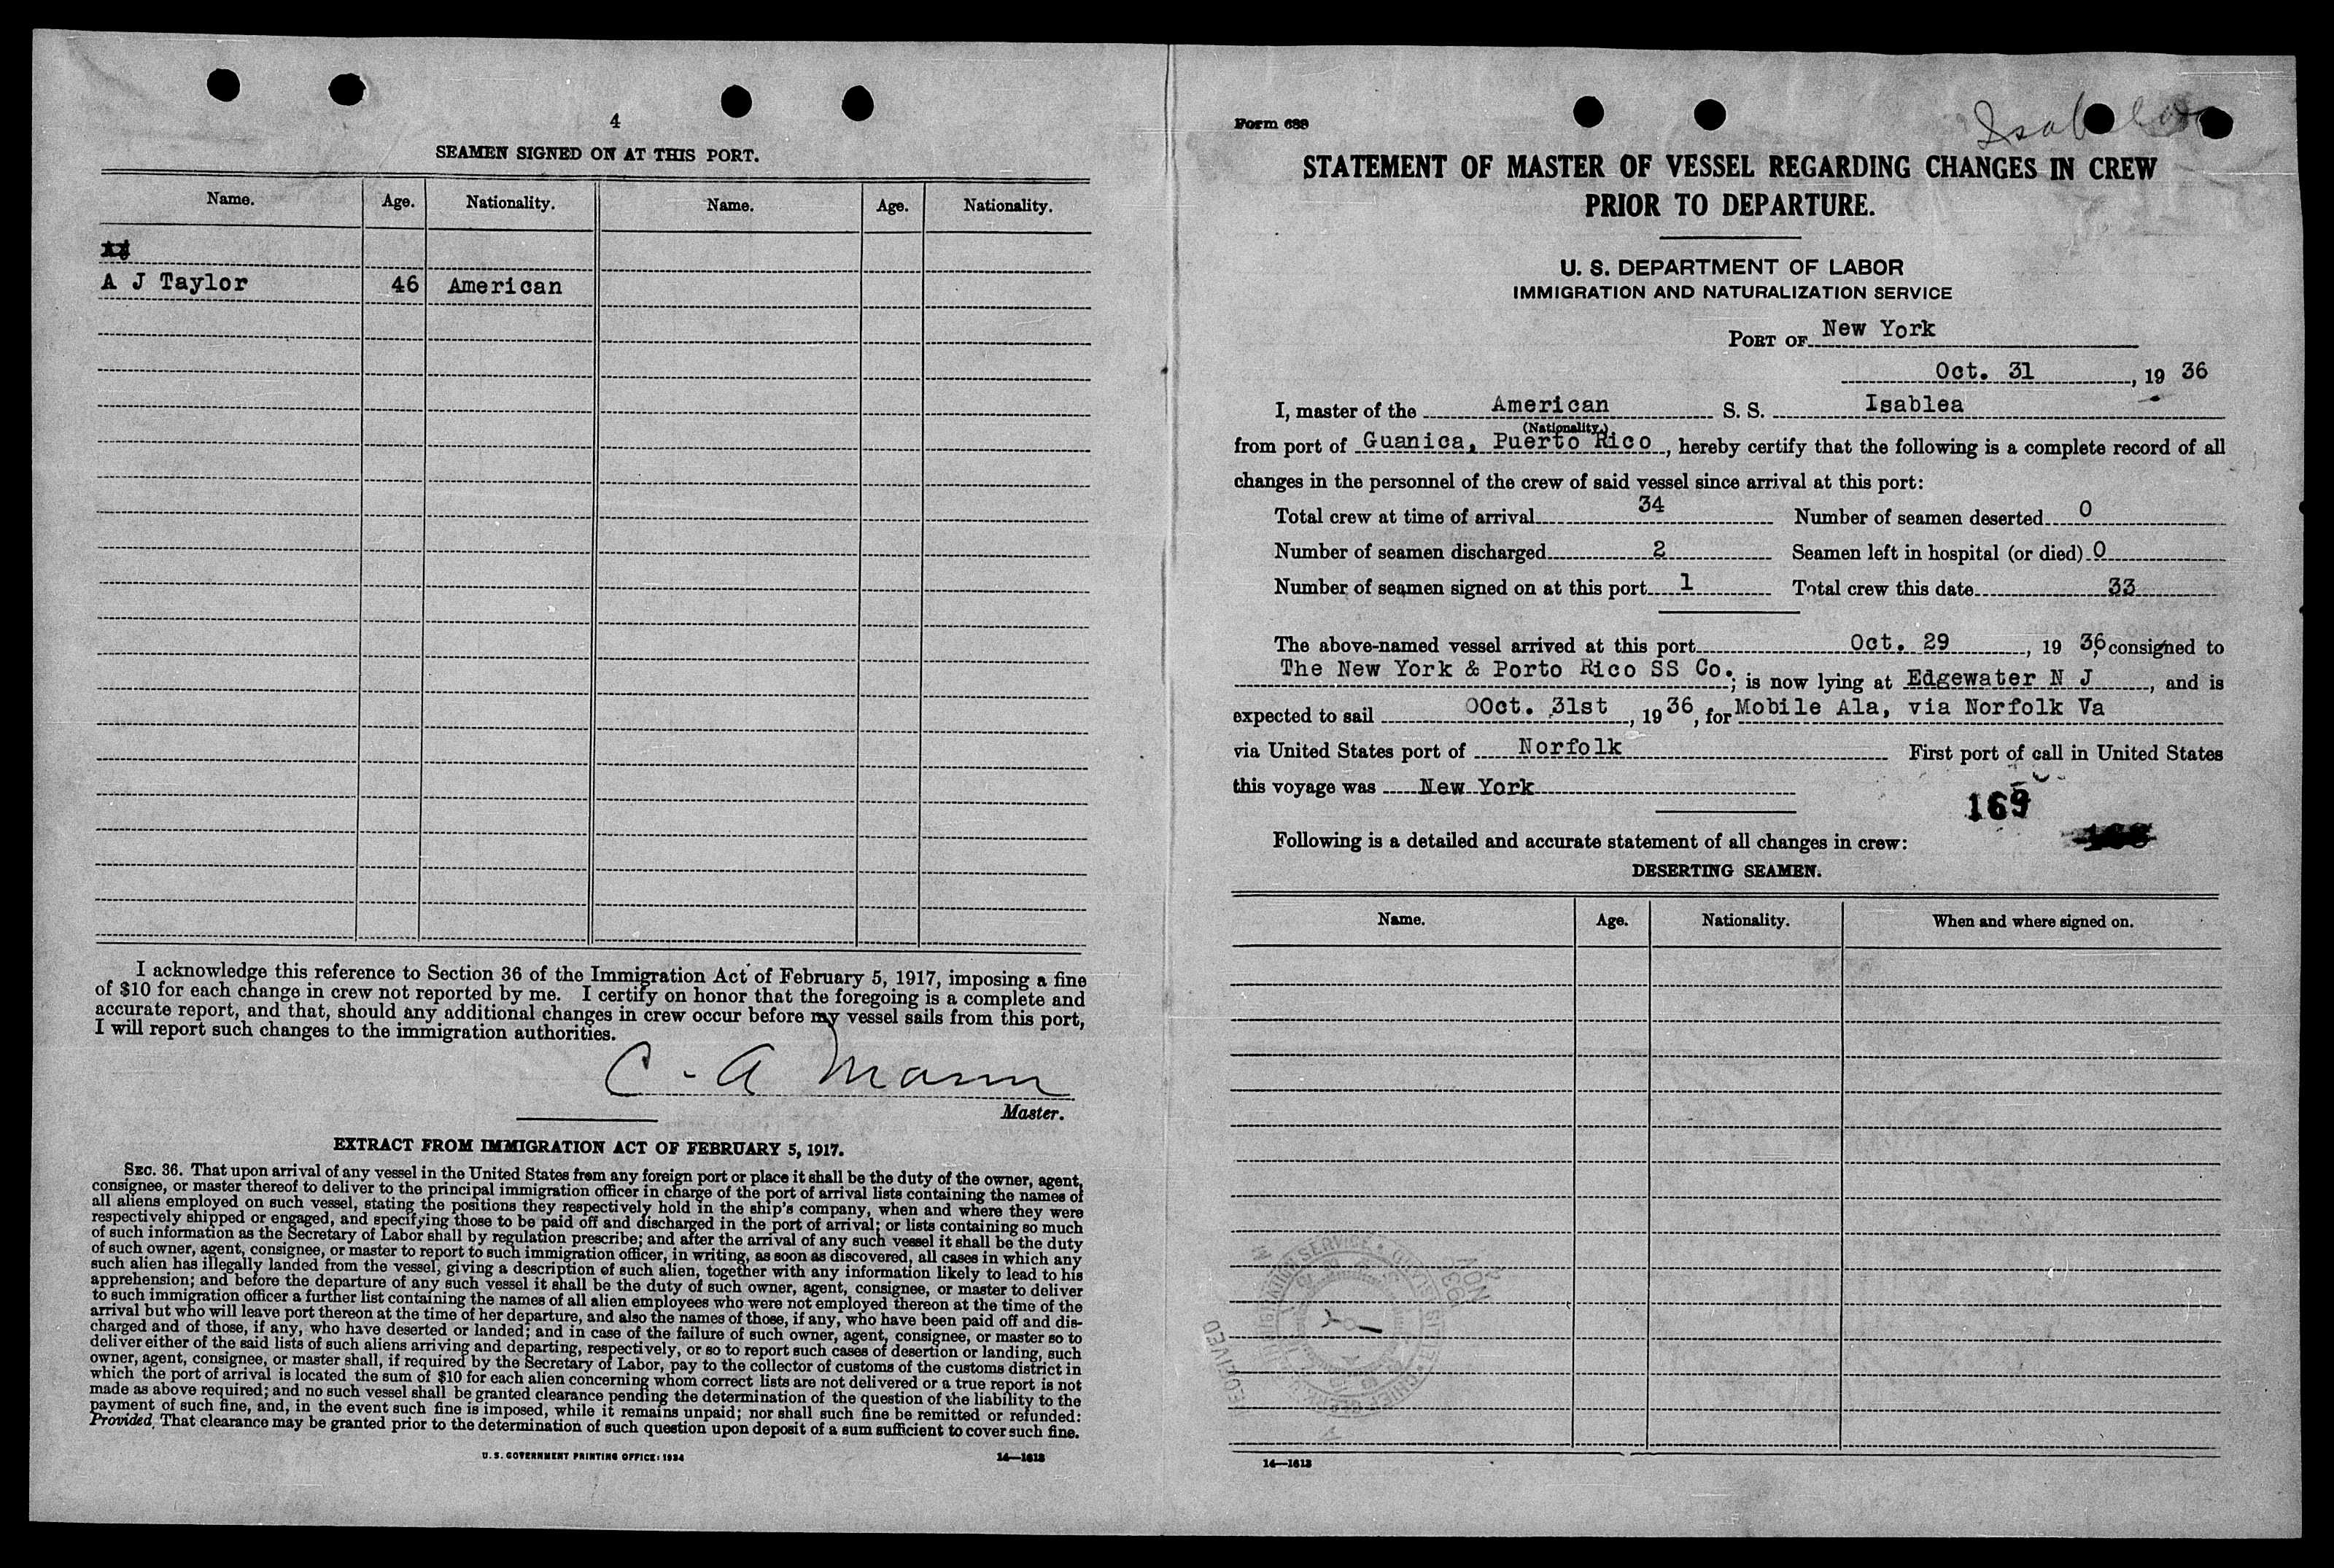 4
SEAMEN SIGNED ON AT THIS PORT.
Name. Age. Nationality. Name. Age. Nationality.
A J Taylor 46 American
I acknowledge this reference to Section 36 of the Immigration Act of February 5, 1917, imposing a fine
of $10 for each change in crew not reported by me. I certify on honor that the foregoing is a complete and
accurate report, and that, should any additional changes in crew occur before my vessel sails from this port,
I will report such changes to the immigration authorities.
C - A Mann
Master.
EXTRACT FROM IMMIGRATION ACT OF FEBRUARY 5, 1917.
SEC. 36. That upon arrival of any vessel in the United States from any foreign port or place it shall be the duty of the owner, agent,
consignee, or master thereof to deliver to the principal immigration officer in charge of the port of arrival lists containing the names of
all aliens employed on such vessel, stating the positions they respectively hold in the ship's company, when and where they were
respectively shipped or engaged, and specifying those to be paid off and discharged in the port of arrival; or lists containing so much
of such information as the Secretary of Labor shall by regulation prescribe; and after the arrival of any such vessel it shall be the duty
of such owner, agent, consignee, or master to report to such immigration officer, in writing, as soon as discovered, all cases in which any
such alien has illegally landed from the vessel, giving a description of such alien, together with any information likely to lead to his
apprehension; and before the departure of any such vessel it shall be the duty of such owner, agent, consignee, or master to deliver
to such immigration officer a further list containing the names of all alien employees who were not employed thereon at the time of the
arrival but who will leave port thereon at the time of her departure, and also the names of those, if any, who have been paid off and dis-
charged and of those, if any, who have deserted or landed; and in case of the failure of such owner, agent, consignee, or master so to
deliver either of the said lists of such aliens arriving and departing, respectively, or so to report such cases of desertion or landing, such
owner, agent, consignee, or master shall, if required by the Secretary of Labor, pay to the collector of customs of the customs district in
which the port of arrival is located the sum of $10 for each alien concerning whom correct lists are not delivered or a true report is not
made as above required; and no such vessel shall be granted clearance pending the determination of the question of the liability to the
payment of such fine, and, in the event such fine is imposed, while it remains unpaid; nor shall such fine be remitted or refunded:
Provided, That clearance may be granted prior to the determination of such question upon deposit of a sum sufficient to cover such fine.
U. S. GOVERNMENT PRINTING OFFICE: 1934 14—1613
Form 689
STATEMENT OF MASTER OF VESSEL REGARDING CHANGES IN CREW
PRIOR TO DEPARTURE.
U. S. DEPARTMENT OF LABOR
IMMIGRATION AND NATURALIZATION SERVICE
PORT OF New York
Oct. 31, 19 36
I, master of the American S. S. Isablea
(Nationality.)
from port of Guanica, Puerto Rico, hereby certify that the following is a complete record of all
changes in the personnel of the crew of said vessel since arrival at this port:
Total crew at time of arrival 34 Number of seamen deserted 0
Number of seamen discharged 2 Seamen left in hospital (or died) 0
Number of seamen signed on at this port 1 Total crew this date 33
The above-named vessel arrived at this port Oct. 29, 19 36, consigned to
The New York & Porto Rico SS Co.; is now lying at Edgewater N J, and is
expected to sail OOct. 31st, 19 36, for Mobile Ala, via Norfolk Va
via United States port of Norfolk First port of call in United States
this voyage was New York
169
Following is a detailed and accurate statement of all changes in crew:
DESERTING SEAMEN.
Name. Age. Nationality. When and where signed on.
14—1613